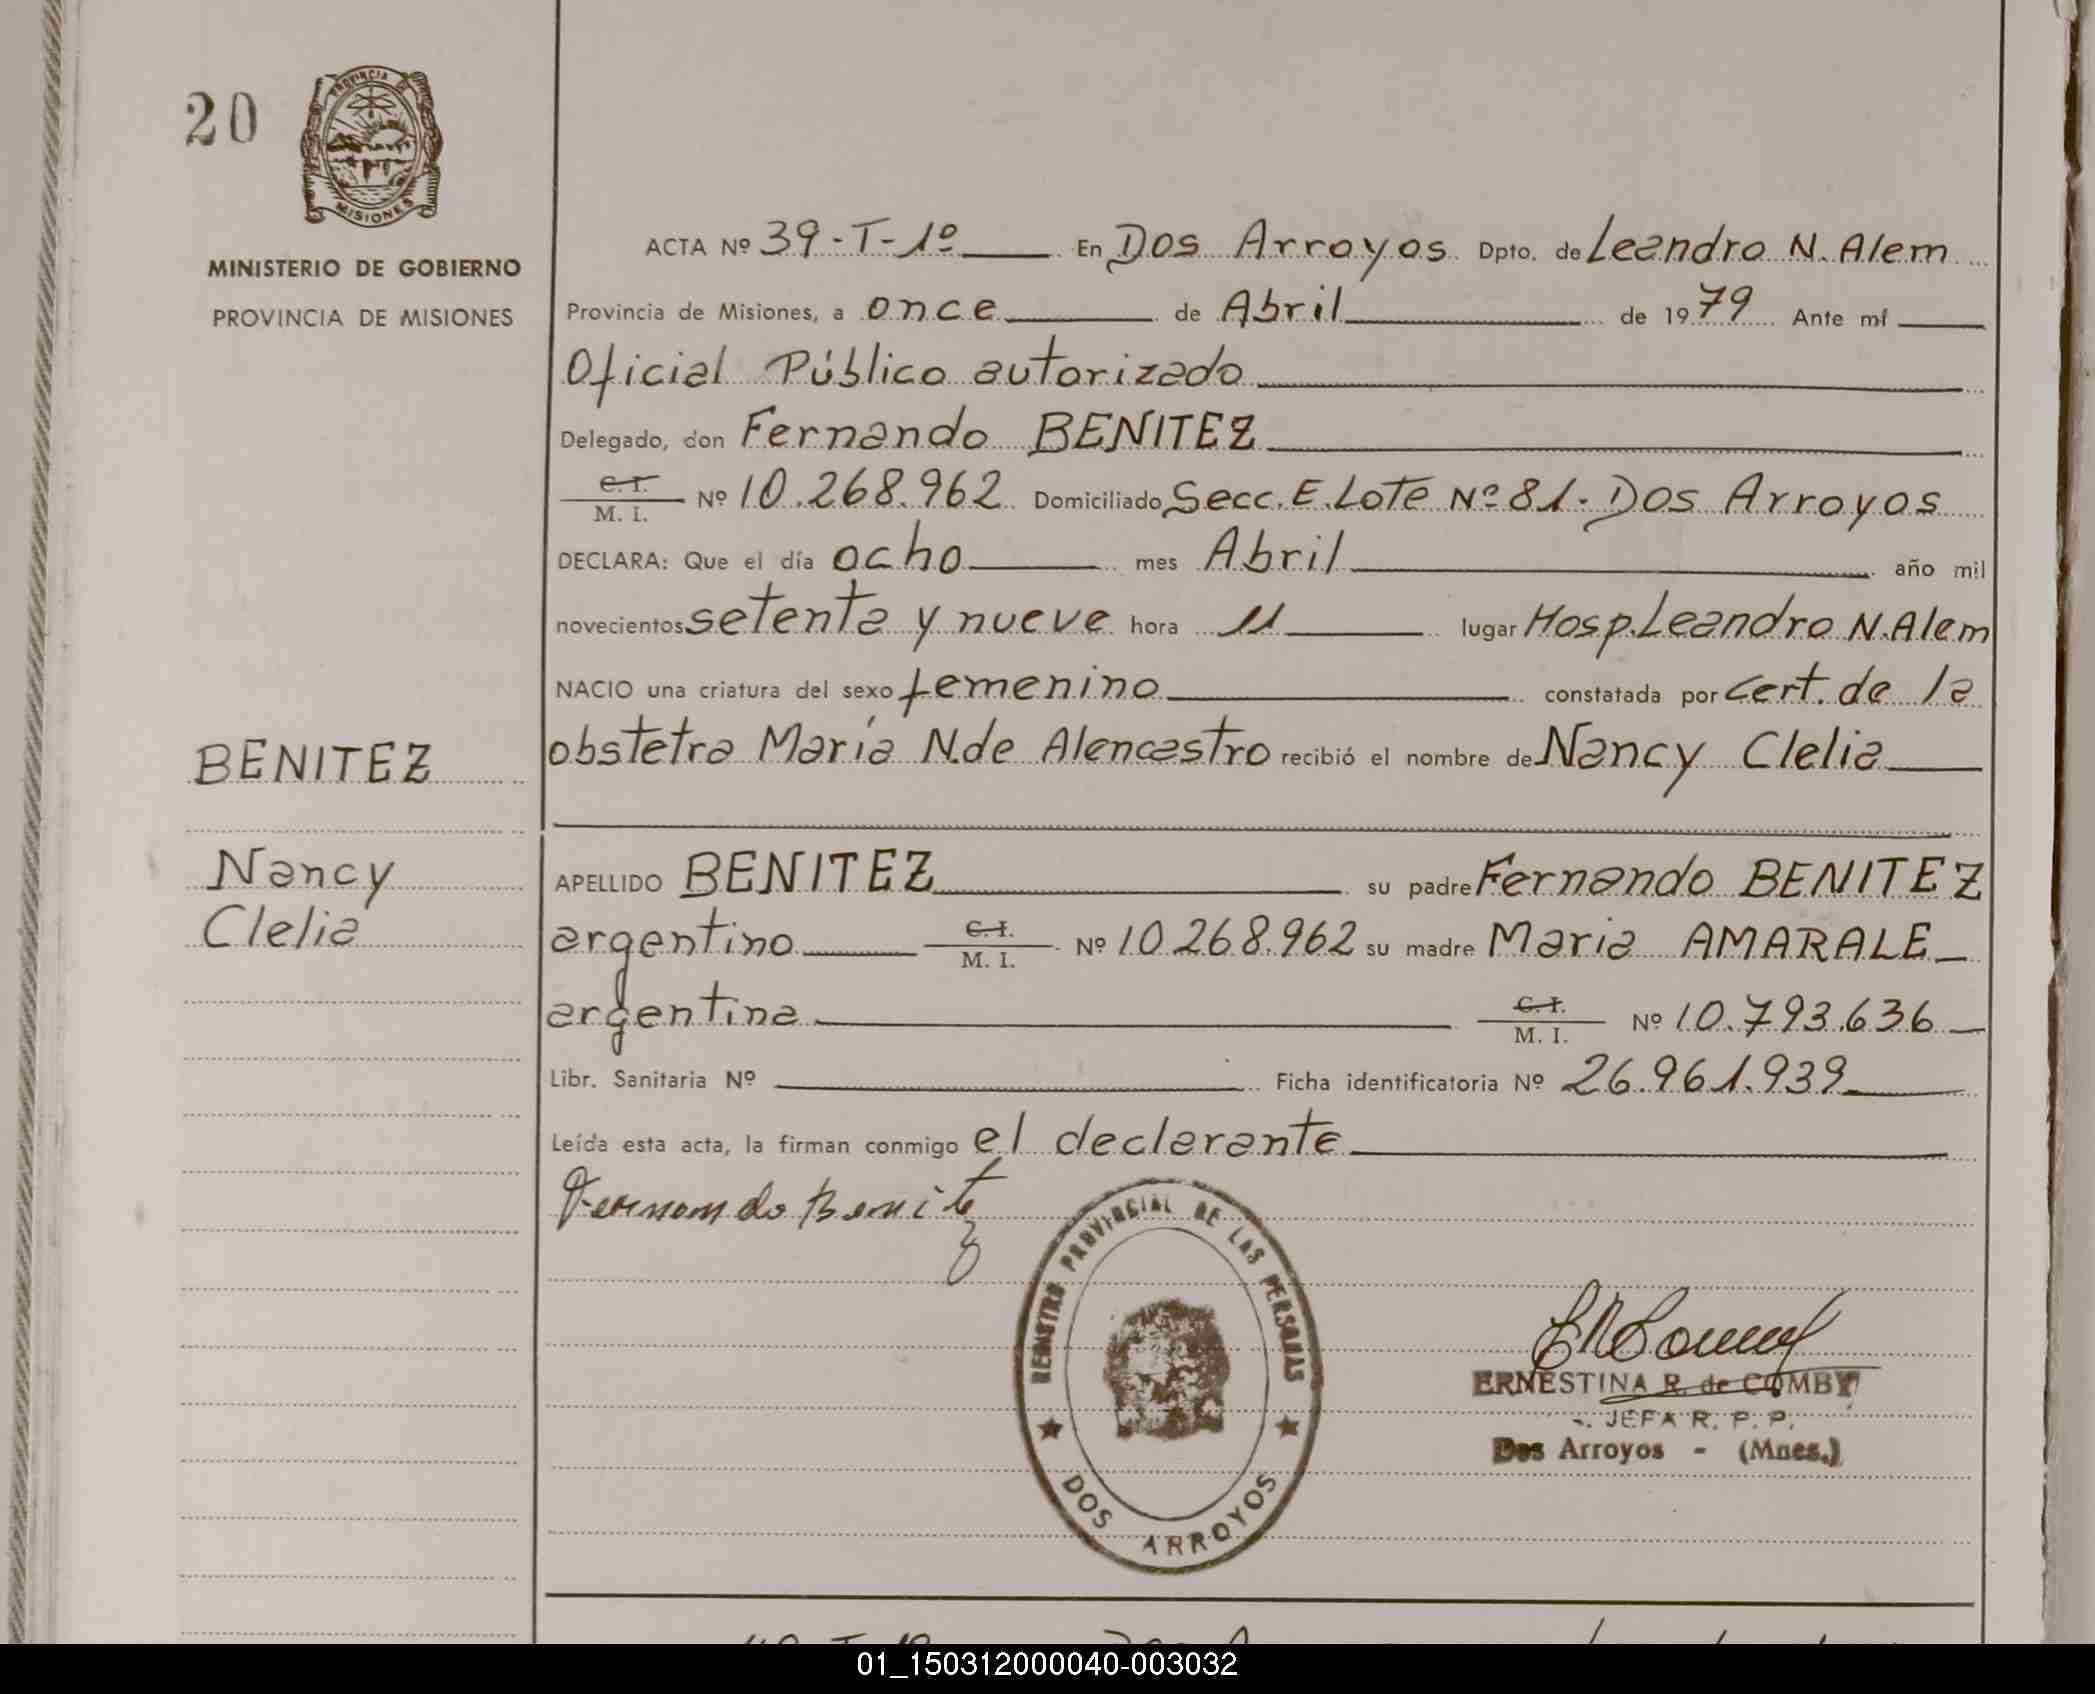 20
PROVINCIA DE
MISIONES
MINISTERIO DE GOBIERNO
PROVINCIA DE MISIONES
BENITEZ
Nancy
Clelia
ACTA Nº 39-T-1º En Dos Arroyos Dpto. de Leandro N. Alem
Provincia de Misiones, a once de Abril de 1979 Ante mí
Oficial Público autorizado
Delegado, don Fernando BENITEZ
C. I.
M. I. Nº 10.268.962 Domiciliado Secc. E. Lote Nº 81. Dos Arroyos
DECLARA: Que el día ocho mes Abril año mil
novecientos setenta y nueve hora 11 lugar Hosp. Leandro N. Alem
NACIO una criatura del sexo femenino constatada por Cert. de la
obstetra María N. de Alencastro recibió el nombre de Nancy Clelia
APELLIDO BENITEZ su padre Fernando BENITEZ
argentino C. I. M. I. Nº 10.268.962 su madre Maria AMARALE
argentina C. I. M. I. Nº 10.793.636
Libr. Sanitaria Nº Ficha identificatoria Nº 26.961.939
Leída esta acta, la firman conmigo el declarante
Fernando Benitez
REGISTRO PROVINCIAL DE LAS PERSONAS
DOS ARROYOS
ERNESTINA R. de COMBY
JEFA R. P. P.
Dos Arroyos - (Mnes.)
01_150312000040-003032